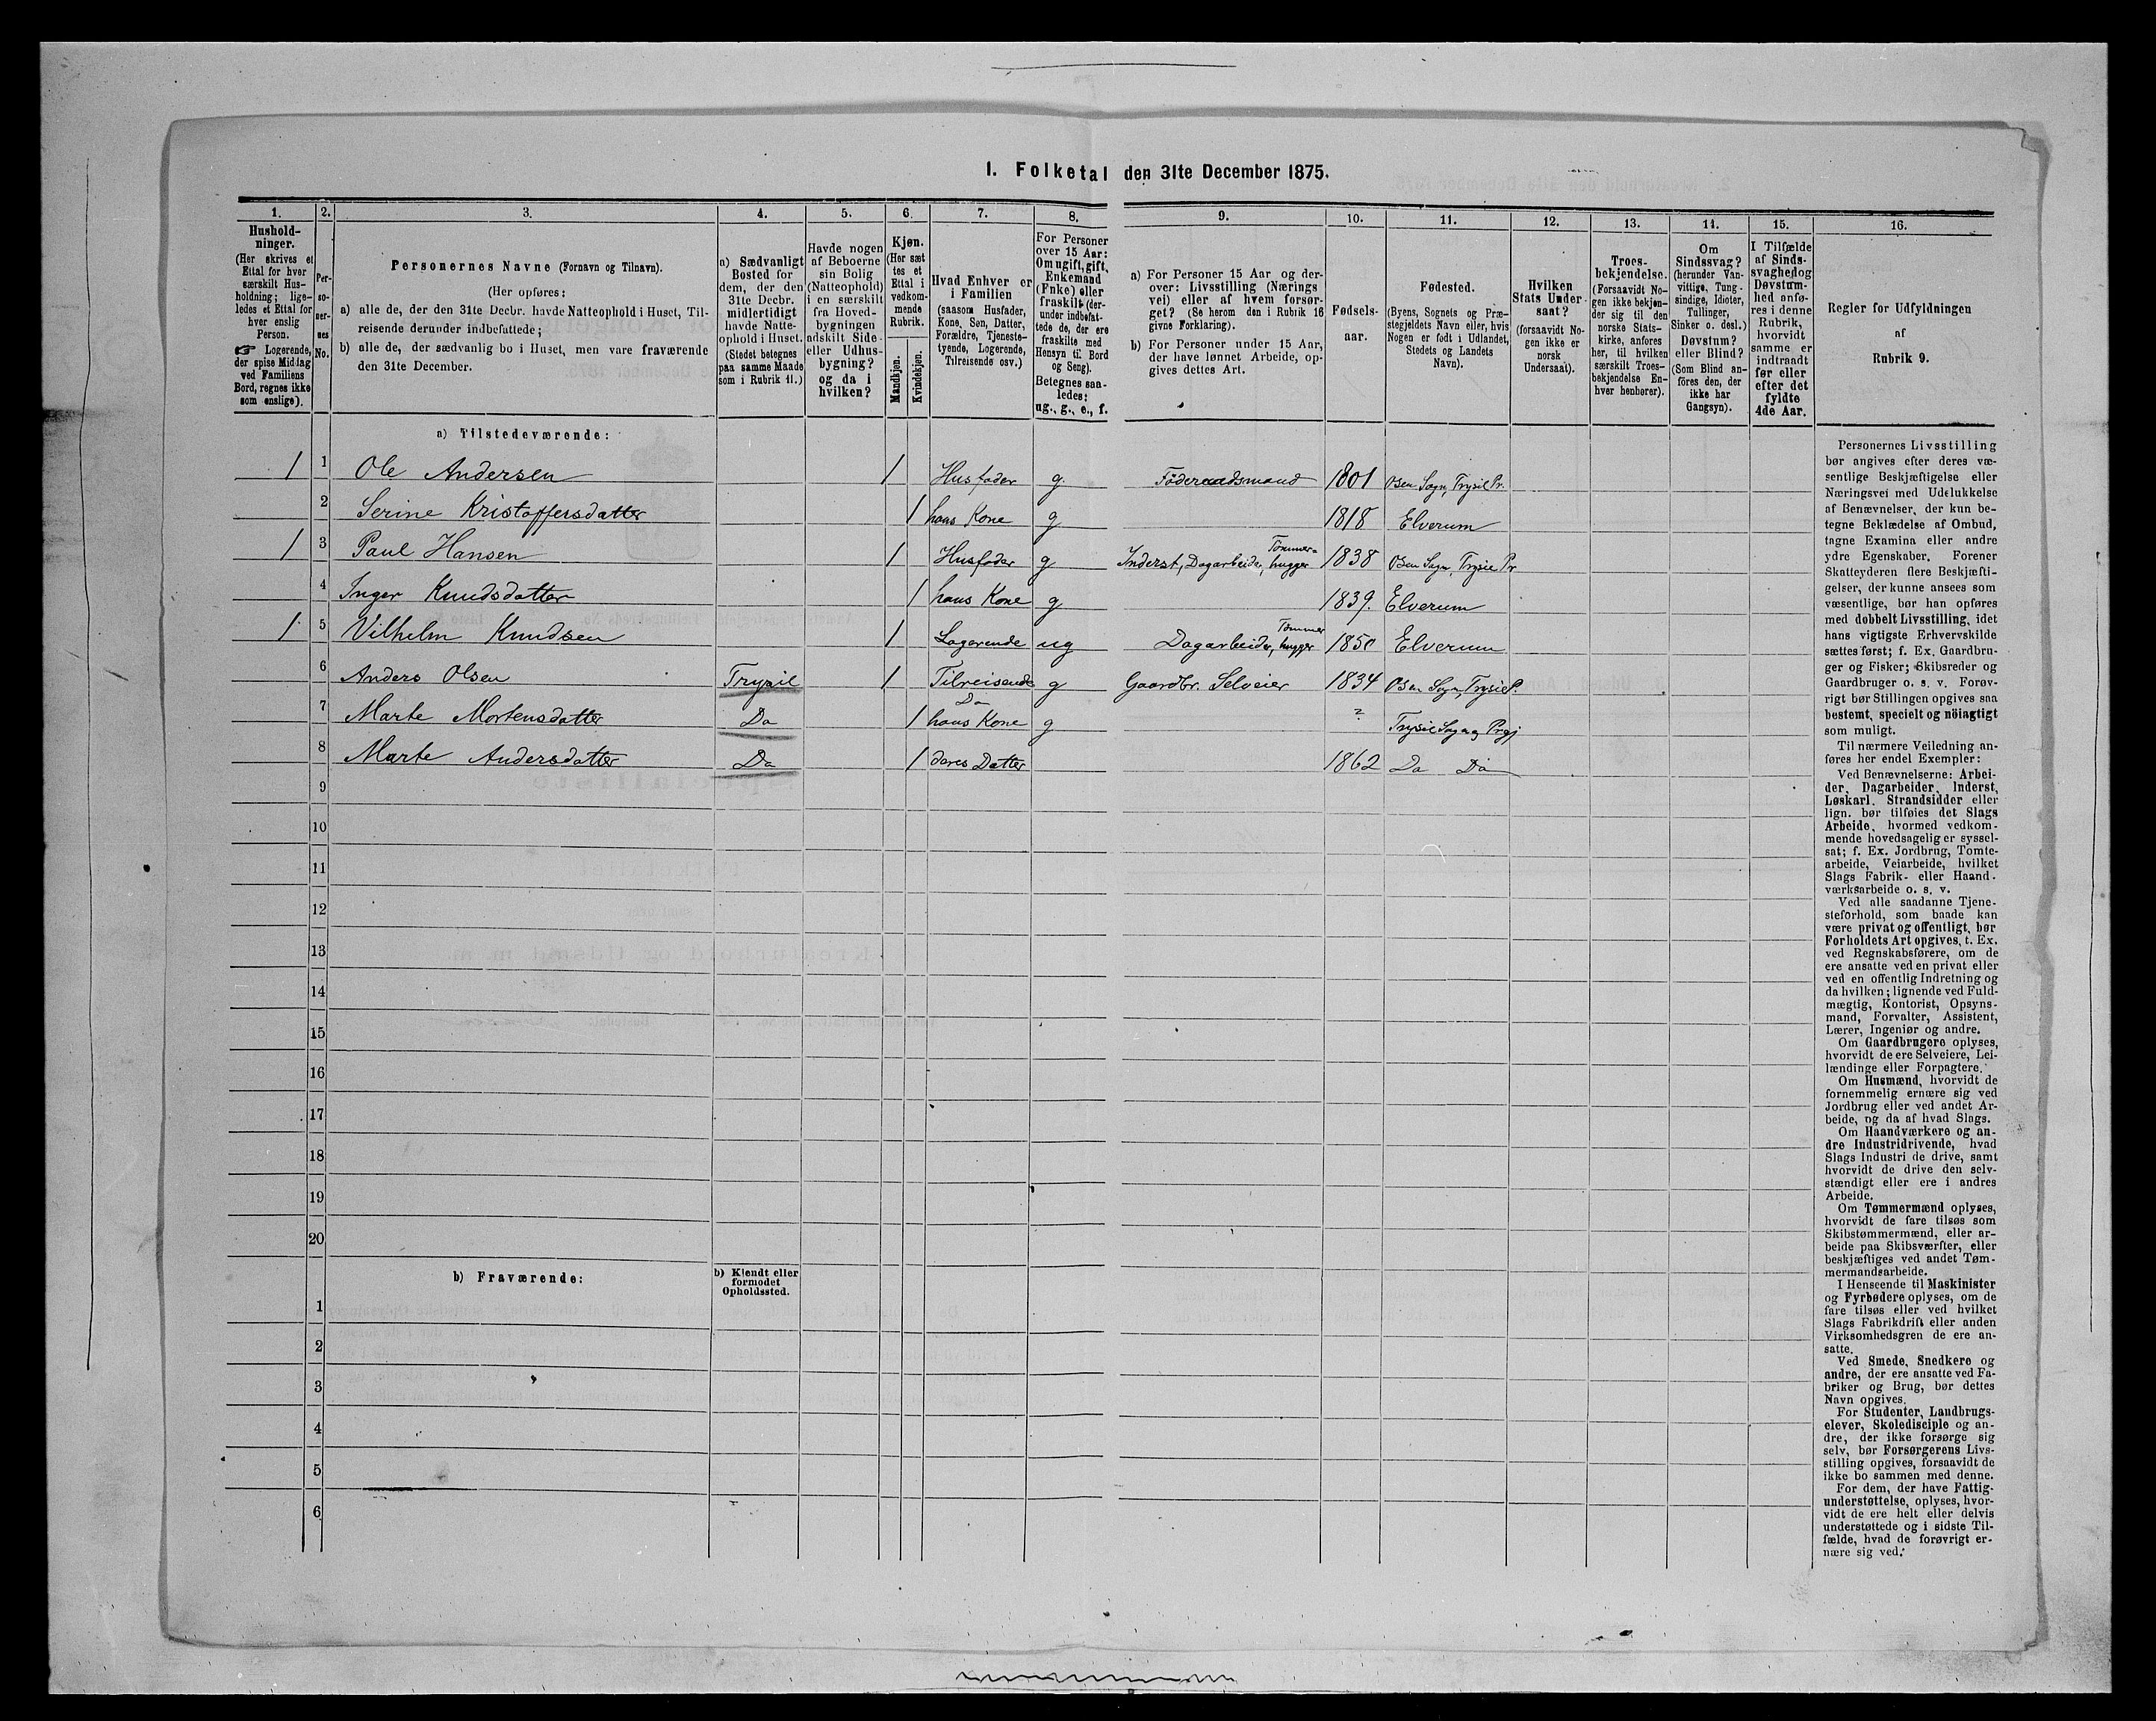 I. Folketal den 31te December 1875.
1.
Hushold-
ninger.
(Her skrives et
Ettal for hver
særskilt Hus-
holdning; lige-
ledes et Ettal for
hver enslig
Person.
☞ Logerende,
der spise Middag
ved Familiens
Bord, regnes ikke
som enslige).
2.
Per-
so-
ner-
nes
No.
3.
Personernes Navne (Fornavn og Tilnavn).
(Her opføres:
a) alle de, der den 31te Decbr. havde Natteophold i Huset, Til-
reisende derunder indbefattede;
b) alle de, der sædvanlig bo i Huset, men vare fraværende
den 31te December.
4.
a) Sædvanligt
Bosted for
dem, der den
31te Decbr.
midlertidigt
havde Natte-
ophold i Huset.
(Stedet betegnes
paa samme Maade
som i Rubrik 11.)
5.
Havde nogen
af Beboerne
sin Bolig
(Natteophold)
i en særskilt
fra Hoved-
bygningen
adskilt Side-
eller Udhus-
bygning?
og da i
hvilken?
6.
Kjøn.
(Her sæt
tes et
Ettal i
vedkom-
mende
Rubrik.
Mandkjøn.
Kvindekjøn.
7.
Hvad Enhver er
i Familien
(saasom Husfader,
Kone, Søn, Datter,
Forældre, Tjeneste-
tyende, Logerende,
Tilreisende osv.)
8.
For Personer
over 15 Aar:
Om ugift, gift,
Enkemand
(Enke) eller
fraskilt (der-
under indbefat-
tede de, der ere
fraskilte med
Hensyn til Bord
og Seng).
Betegnes saa-
ledes:
ug., g., e., f.
9.
a) For Personer 15 Aar og der-
over: Livsstilling (Nærings
vei) eller af hvem forsør-
get? (Se herom den i Rubrik 16
givne Forklaring).
b) For Personer under 15 Aar,
der have lønnet Arbeide, op-
gives dettes Art.
10.
Fødsels-
aar.
11.
Fødested.
(Byens, Sognets og Præ-
stegjeldets Navn eller, hvis
Nogen er født i Udlandet,
Stedets og Landets
Navn).
12.
Hvilken
Stats Under-
saat?
(forsaavidt No-
gen ikke er
norsk
Undersaat).
13.
Troes-
bekjendelse.
(Forsaavidt No-
gen ikke bekjen-
der sig til den
norske Stats-
kirke, anføres
her, til hvilken
særskilt Troes-
bekjendelse En-
hver henhører).
14.
Om
Sindssvag?
(herunder Van-
vittige, Tung-
sindige, Idioter,
Tullinger,
Sinker o. desl.)
Døvstum?
eller Blind?
(Som Blind an-
föres den, der
ikke har
Gangsyn).
15.
I Tilfælde
af Sinds-
svaghed og
Døvstum-
hed anfø-
res i denne
Rubrik,
hvorvidt
samme er
indtraadt
før eller
efter det
fyldte
4de Aar.
16.
Regler for Udfyldningen
af
Rubrik 9.
a) Tilstedeværende:
1 1 Ole Andersen 1 Husfader g. Föderaadsmand 1801 Osen Sogn, Trysil Pr.
2 Serine Kristoffersdatter 1 hans Kone g 1818 Elverum
1 3 Paul Hansen 1 Husfader g Inderst, Dagarbeider, Tømmer-hugger 1838 Osen Sogn, Trysil Pr
4 Inger Knudsdatter 1 hans Kone g 1839. Elverum
1 5 Vilhelm Knudsen 1 Logerende ug Dagarbeider, Tømmer hugger 1850 Elverum
6 Anders Olsen Trysil 1 Tilreisende g Gaardbr. Selveier 1834 Osen Sogn, Trysil P.
7 Marte Mortensdatter Do 1 Do hans Kone g ? Trysil Sogn og Prgj
8 Marte Andersdatter Do 1 deres Datter 1862 Do Do
9
10
11
12
13
14
15
16
17
18
19
20
b) Fraværende:
b) Kjendt eller
formodet
Opholdssted.
1
2
3
4
5
6
Personernes Livsstilling
bør angives efter deres væ-
sentlige Beskjæftigelse eller
Næringsvei med Udelukkelse
af Benævnelser, der kun be-
tegne Beklædelse af Ombud,
tagne Examina eller andre
ydre Egenskaber. Forener
Skatteyderen flere Beskjæfti-
gelser, der kunne ansees som
væsentlige, bør han opføres
med dobbelt Livsstilling, idet
hans vigtigste Erhvervskilde
sættes først; f. Ex. Gaardbru-
ger og Fisker; Skibsreder og
Gaardbruger o. s. v. Forøv-
rigt bør Stillingen opgives saa
bestemt, specielt og nöiagtigt
som muligt.
Til nærmere Veiledning an-
føres her endel Exempler:
Ved Benævnelserne: Arbei-
der, Dagarbeider, Inderst,
Løskarl, Strandsidder eller
lign. bør tilføies det Slags
Arbeide, hvormed vedkom-
mende hovedsagelig er syssel-
sat; f. Ex. Jordbrug, Tomte-
arbeide, Veiarbeide, hvilket
Slags Fabrik- eller Haand-
værksarbeide o. s. v.
Ved alle saadanne Tjene-
steforhold, som baade kan
være privat og offentligt, bør
Forholdets Art opgives, f. Ex.
ved Regnskabsførere, om de
ere ansatte ved en privat eller
ved en offentlig Indretning og
da hvilken; lignende ved Fuld-
mægtig, Kontorist, Opsyns-
mand, Forvalter, Assistent,
Lærer, Ingeniør og andre.
Om Gaardbrugere oplyses,
hvorvidt de ere Selveiere, Lei-
lændinge eller Forpagtere.
Om Husmænd, hvorvidt de
fornemmelig ernære sig ved
Jordbrug eller ved andet Ar-
beide, og da af hvad Slags.
Om Haandværkere og an-
dre Industridrivende, hvad
Slags Industri de drive, samt
hvorvidt de drive den selv-
stændigt eller ere i andres
Arbeide.
Om Tømmermænd oplyses,
hvorvidt de fare tilsøs som
Skibstømmermænd, eller ar-
beide paa Skibsværfter, eller
beskjæftiges ved andet Tøm-
mermandsarbeide.
I Henseende til Maskinister
og Fyrbødere oplyses, om de
fare tilsøs eller ved hvilket
Slags Fabrikdrift eller anden
Virksomhedsgren de ere an-
satte.
Ved Smede, Snedkere og
andre, der ere ansatte ved Fa-
briker og Brug, bør dettes
Navn opgives.
For Studenter, Landbrugs-
elever, Skoledisciple og an-
dre, der ikke forsørge sig
selv, bør Forsørgerens Livs-
stilling opgives, forsaavidt de
ikke bo sammen med denne.
For dem, der have Fattig-
understøttelse, oplyses, hvor-
vidt de ere helt eller delvis
understøttede og i sidste Til-
fælde, hvad de forøvrigt er-
nære sig ved.